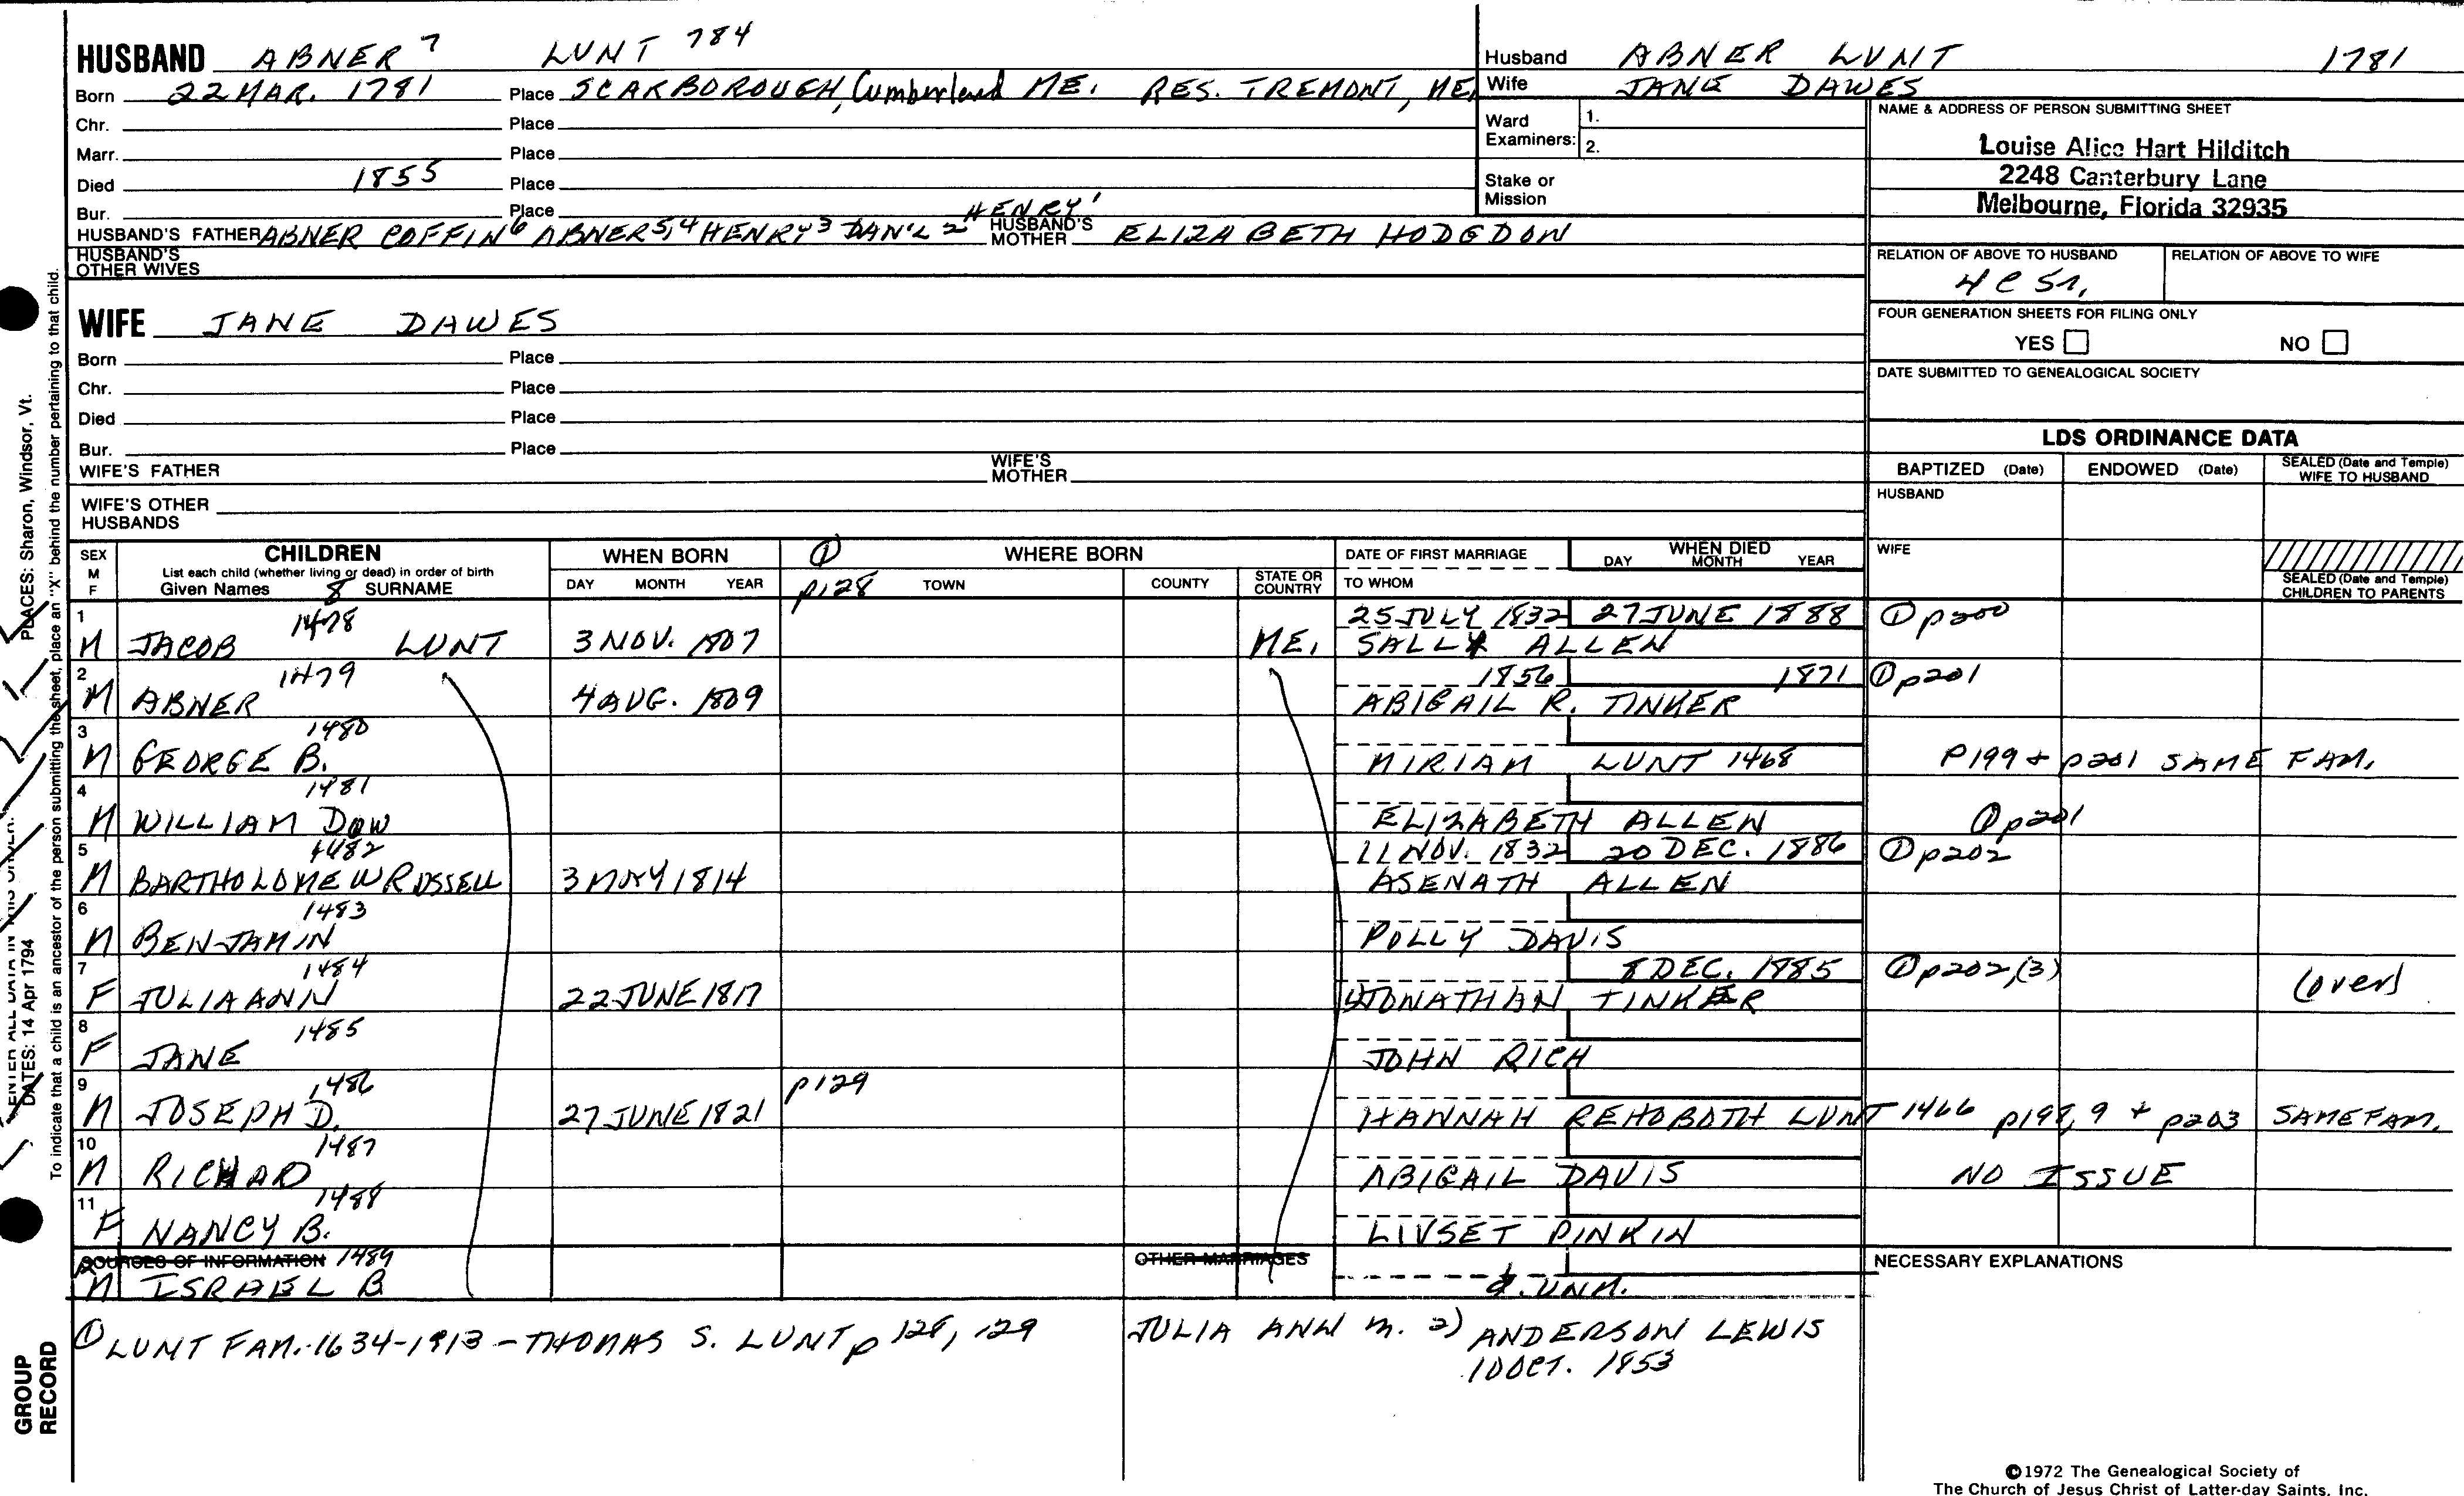 HUSBAND ABNER 7 LUNT 784
Born 22 MAR. 1781 Place SCARBOROUGH, Cumberland ME. RES. TREMONT, ME.
Chr. Place
Marr. Place
Died 1855 Place
Bur. Place
HUSBAND'S FATHER ABNER COFFIN 6 ABNER 5,4 HENRY 3 DAN'L 2 HENRY 1 HUSBAND'S MOTHER ELIZABETH HODGDON
HUSBAND'S OTHER WIVES
WIFE JANE DAWES
Born Place
Chr. Place
Died Place
Bur. Place
WIFE'S FATHER WIFE'S MOTHER
WIFE'S OTHER HUSBANDS
Husband ABNER LUNT 1781
Wife JANE DAWES
Ward Examiners: 1.
2.
Stake or Mission
NAME & ADDRESS OF PERSON SUBMITTING SHEET
Louise Alice Hart Hilditch
2248 Canterbury Lane
Melbourne, Florida 32935
RELATION OF ABOVE TO HUSBAND RELATION OF ABOVE TO WIFE
4 C 5r,
FOUR GENERATION SHEETS FOR FILING ONLY
YES NO
DATE SUBMITTED TO GENEALOGICAL SOCIETY
LDS ORDINANCE DATA
BAPTIZED (Date) ENDOWED (Date) SEALED (Date and Temple) WIFE TO HUSBAND
HUSBAND
WIFE
SEALED (Date and Temple) CHILDREN TO PARENTS
SEX M F
CHILDREN
List each child (whether living or dead) in order of birth
Given Names 8 SURNAME
WHEN BORN
DAY MONTH YEAR
① p128
WHERE BORN
TOWN COUNTY STATE OR COUNTRY
DATE OF FIRST MARRIAGE
TO WHOM
WHEN DIED
DAY MONTH YEAR
1 1478 25 JULY 1832 27 JUNE 1888 ① p200
M JACOB LUNT 3 NOV. 1807 ME. SALLY ALLEN
2 1479 1856 1871 ① p201
M ABNER 4 AUG. 1809 ABIGAIL R. TINKER
3 1480
M GEORGE B. MIRIAM LUNT 1468 P199 + p201 SAME FAM.
4 1481
M WILLIAM DOW ELIZABETH ALLEN ① p201
5 1482 11 NOV. 1832 20 DEC. 1886 ① p202
M BARTHOLOMEW RUSSELL 3 MAY 1814 ASENATH ALLEN
6 1483
M BENJAMIN POLLY DAVIS
7 1484 8 DEC. 1885 ① p202,(3)
F JULIA ANN 22 JUNE 1817 JONATHAN TINKER (over)
8 1485
F JANE JOHN RICH
9 1486 p129
M JOSEPH D. 27 JUNE 1821 HANNAH REHOBOTH LUNT 1466 p198,9 + p203 SAME FAM.
10 1487
M RICHARD ABIGAIL DAVIS NO ISSUE
11 1488
F NANCY B. LIVSET PINKIN
SOURCES OF INFORMATION 1489 OTHER MARRIAGES NECESSARY EXPLANATIONS
12 M ISRAEL B. d. UNM.
① LUNT FAM. 1634-1913 - THOMAS S. LUNT p 128, 129
JULIA ANN m. 2) ANDERSON LEWIS
10 OCT. 1853
©1972 The Genealogical Society of
The Church of Jesus Christ of Latter-day Saints, Inc.
PLACES: Sharon, Windsor, Vt.
ENTER ALL DATA IN THIS ORDER:
DATES: 14 Apr 1794
To indicate that a child is an ancestor of the person submitting the sheet, place an "X" behind the number pertaining to that child.
GROUP RECORD